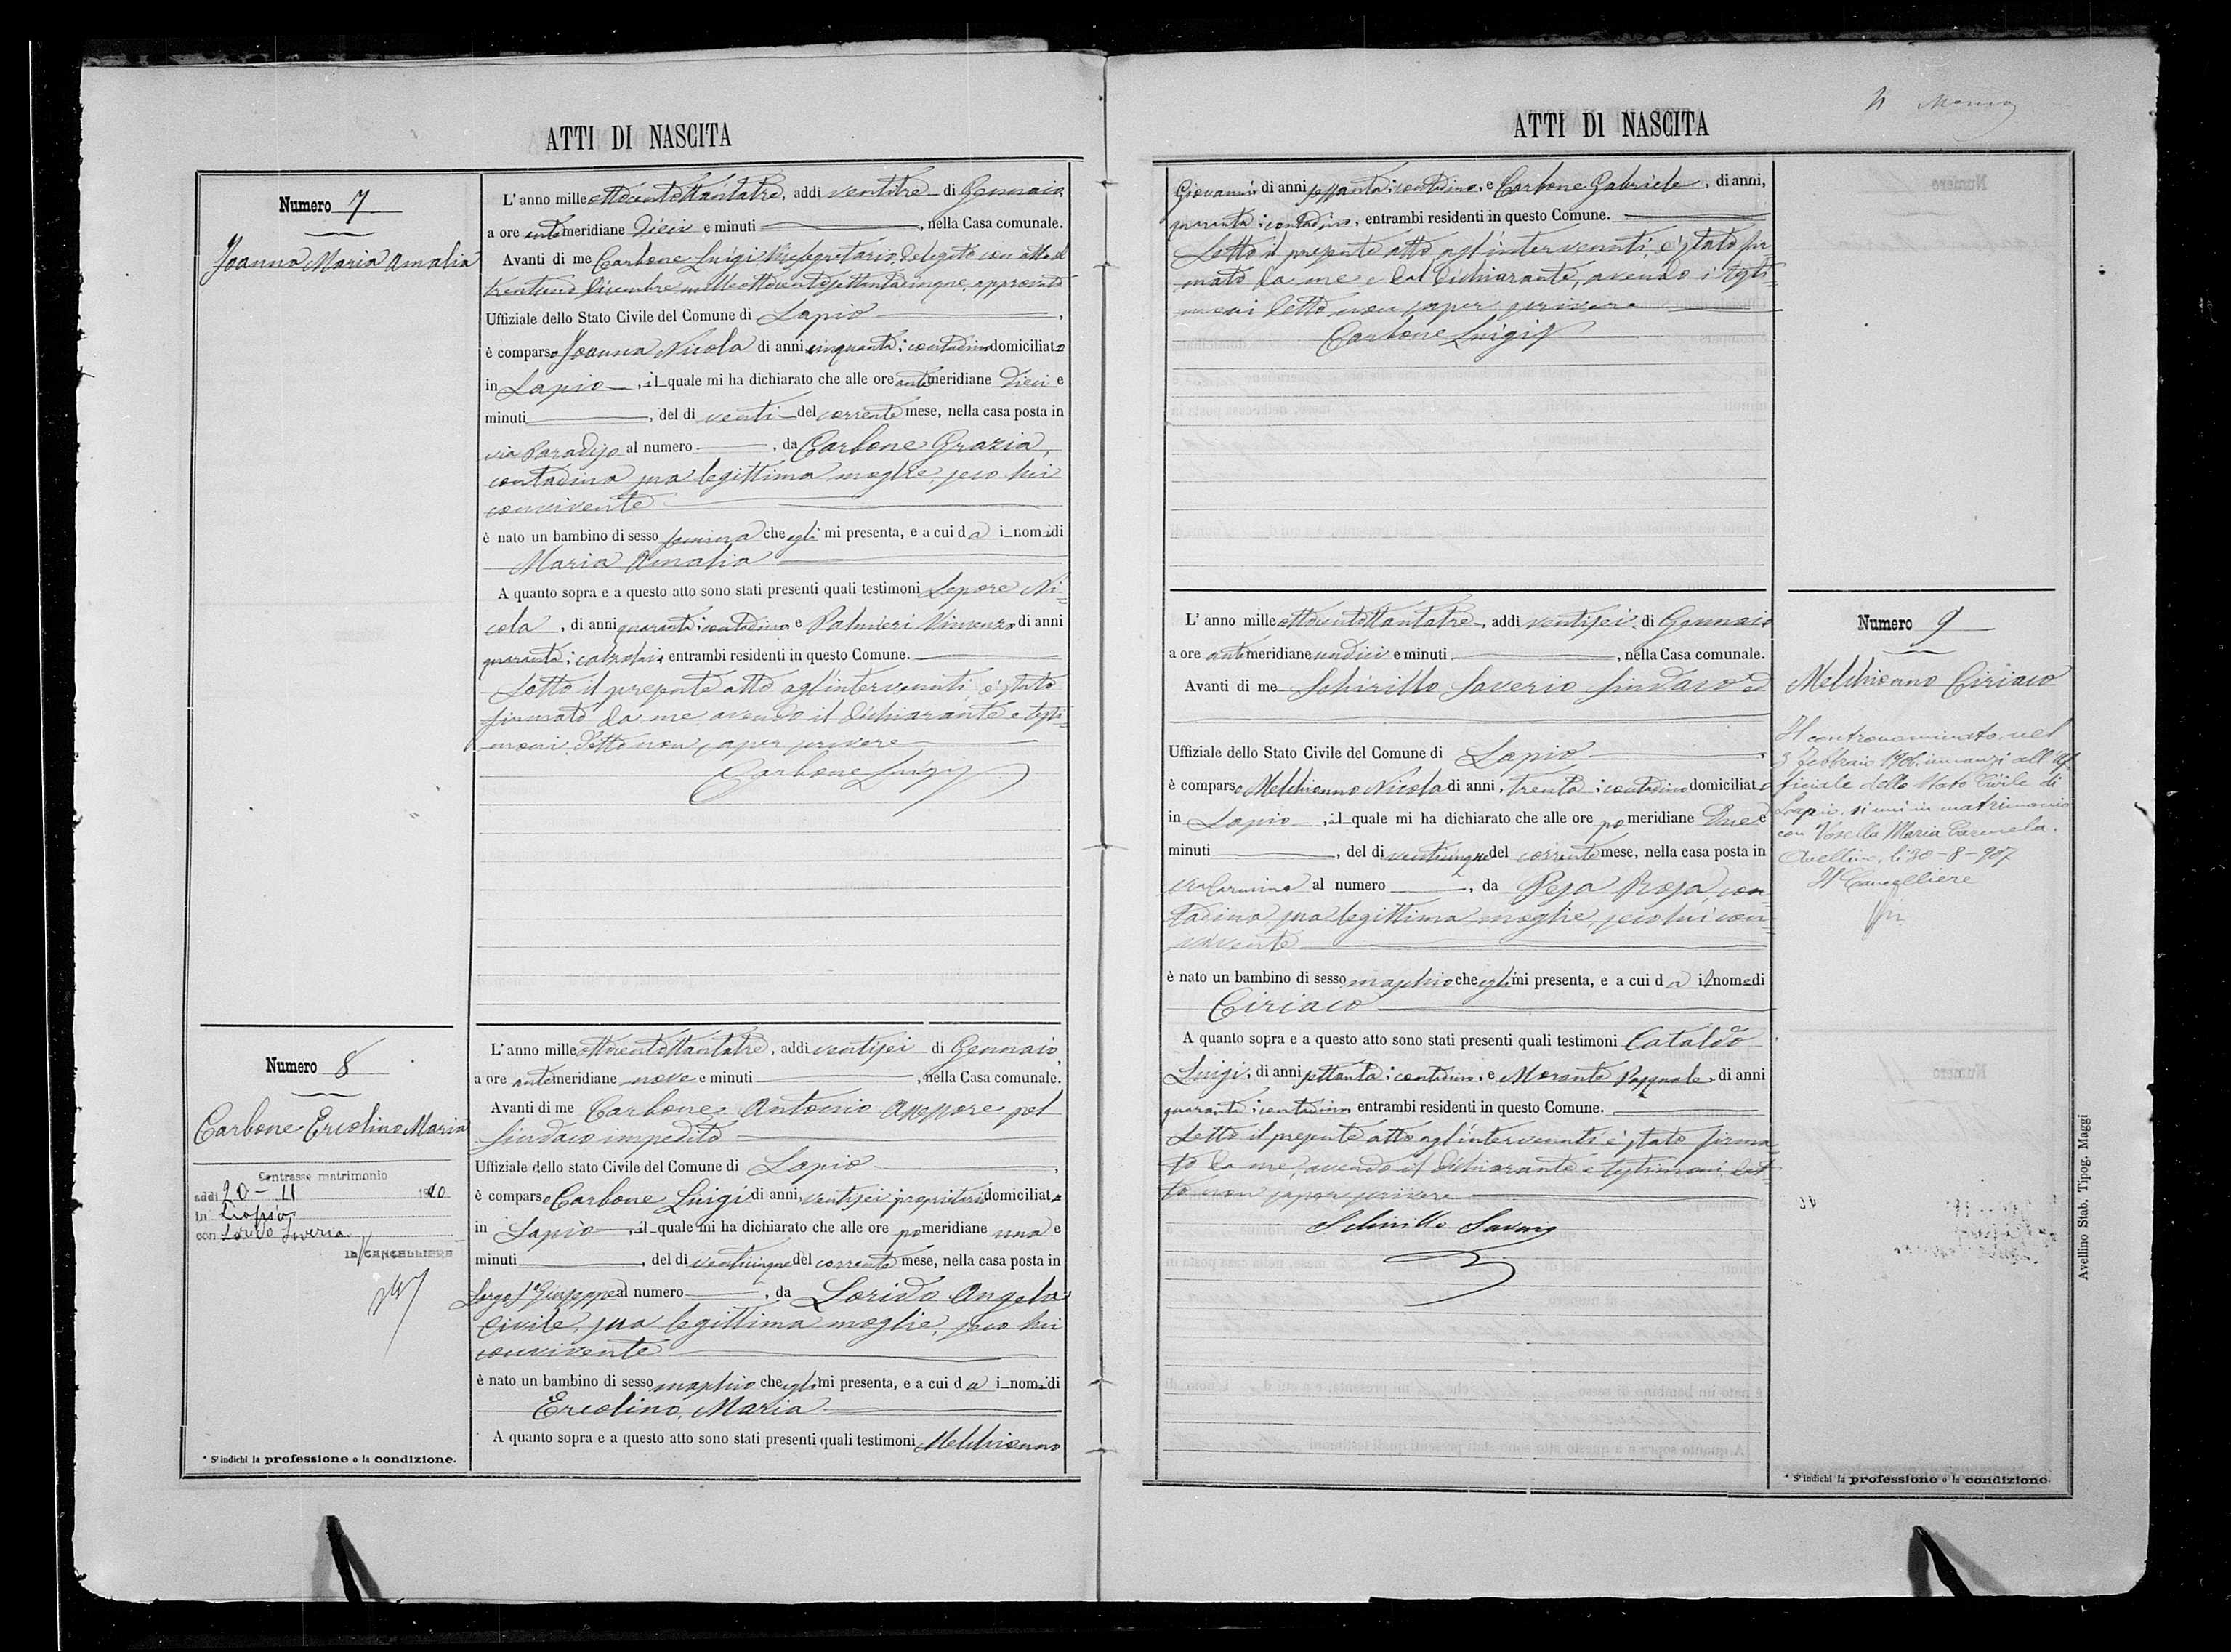 ATTI DI NASCITA
Numero 7
Joanna Maria Amalia
L'anno milleottocentottantatre, addì ventitre di Gennaio
a ore antemeridiane dieci e minuti , nella Casa comunale.
Avanti di me Carbone Luigi Vicesegretario, delegato con atto del
trentuno Dicembre milleottocentosettantacinque, approvato
Uffiziale dello Stato Civile del Comune di Lapio ,
è comparso Joanna Nicola di anni cinquanta; contadino domiciliato
in Lapio , il quale mi ha dichiarato che alle ore antemeridiane dieci e
minuti , del dì venti del corrente mese, nella casa posta in
via Paradiso al numero , da Carbone Grazia,
contadina sua legittima moglie, seco lui
convivente
è nato un bambino di sesso femina che egli mi presenta, e a cui da i nomi di
Maria Amalia
A quanto sopra e a questo atto sono stati presenti quali testimoni Lepore Ni=
cola , di anni quaranta; contadino e Palmieri Vincenzo di anni
quaranta; calzolaio entrambi residenti in questo Comune.
Letto il presente atto agl'intervenuti è stato
firmato da me avendo il dichiarante e testi=
moni detto non saper scrivere
Carbone Luigi
Numero 8
Carbone Ercolino Maria
Contrasse matrimonio
addì 20-11 1910
in Lapio
con Lorido Saveria
IL CANCELLIERE
L'anno milleottocentottantatre, addì ventisei di Gennaio,
a ore antemeridiane nove e minuti , nella Casa comunale.
Avanti di me Carbone Antonio Assessore pel
Sindaco impedito
Uffiziale dello stato Civile del Comune di Lapio ,
è comparso Carbone Luigi di anni, ventisei proprietario domiciliato
in Lapio , il quale mi ha dichiarato che alle ore pomeridiane una e
minuti , del dì venticinque del corrente mese, nella casa posta in
Largo S. Giuseppe al numero , da Lorido Angela
Civile, sua legittima moglie, seco lui
convivente
è nato un bambino di sesso maschio che egli mi presenta, e a cui da i nomi di
Ercolino, Maria
A quanto sopra e a questo atto sono stati presenti quali testimoni Melchionno
* Si indichi la professione o la condizione.
ATTI DI NASCITA
Giovanni, di anni sessanta; contadino, e Carbone Gabriele , di anni,
quaranta; contadino, entrambi residenti in questo Comune.
Letto il presente atto agl'intervenuti, è stato fir
mato da me e dal dichiarante, avendo i testi=
moni detto non saper scrivere
Carbone Luigi
L'anno milleottocentottantatre, addì ventisei di Gennaio
a ore antimeridiane undici e minuti , nella Casa comunale.
Avanti di me Schirillo Saverio Sindaco ed
Uffiziale dello Stato Civile del Comune di Lapio ,
è comparso Melchionno Nicola di anni, trenta; contadino domiciliato
in Lapio , il quale mi ha dichiarato che alle ore pomeridiane Due e
minuti , del dì venticinque del corrente mese, nella casa posta in
via Carmine al numero , da Pesa Rosa, con
tadina, sua legittima moglie, seco lui con=
vivente
è nato un bambino di sesso maschio che egli mi presenta, e a cui da il nome di
Ciriaco
A quanto sopra e a questo atto sono stati presenti quali testimoni Cataldo
Luigi, di anni settanta; contadino, e Morante Pasquale, di anni
quaranta; contadino entrambi residenti in questo Comune.
Letto il presente atto agl'intervenuti è stato firma=
to da me, avendo il dichiarante e testimoni det=
to non saper scrivere
Schirillo Saverio
Numero 9
Melchionno Ciriaco
Il contronominato, nel
3 Febbraio 1906 innanzi all'Uf
ficiale dello Stato Civile di
Lapio, si unì in matrimonio
con Vosella Maria Carmela.
Avellino, lì 30-8-907
Il Cancelliere
* Si indichi la professione o la condizione.
Avellino Stab. Tipog. Maggi